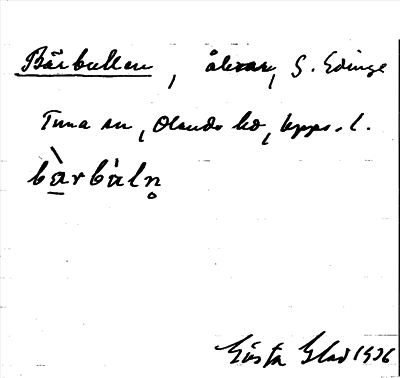 Bärbullen, åkrar, S. Edinge
Tuna sn, Olands hd, Upps. l.
bàrbàln̥
Gösta Glad 1936